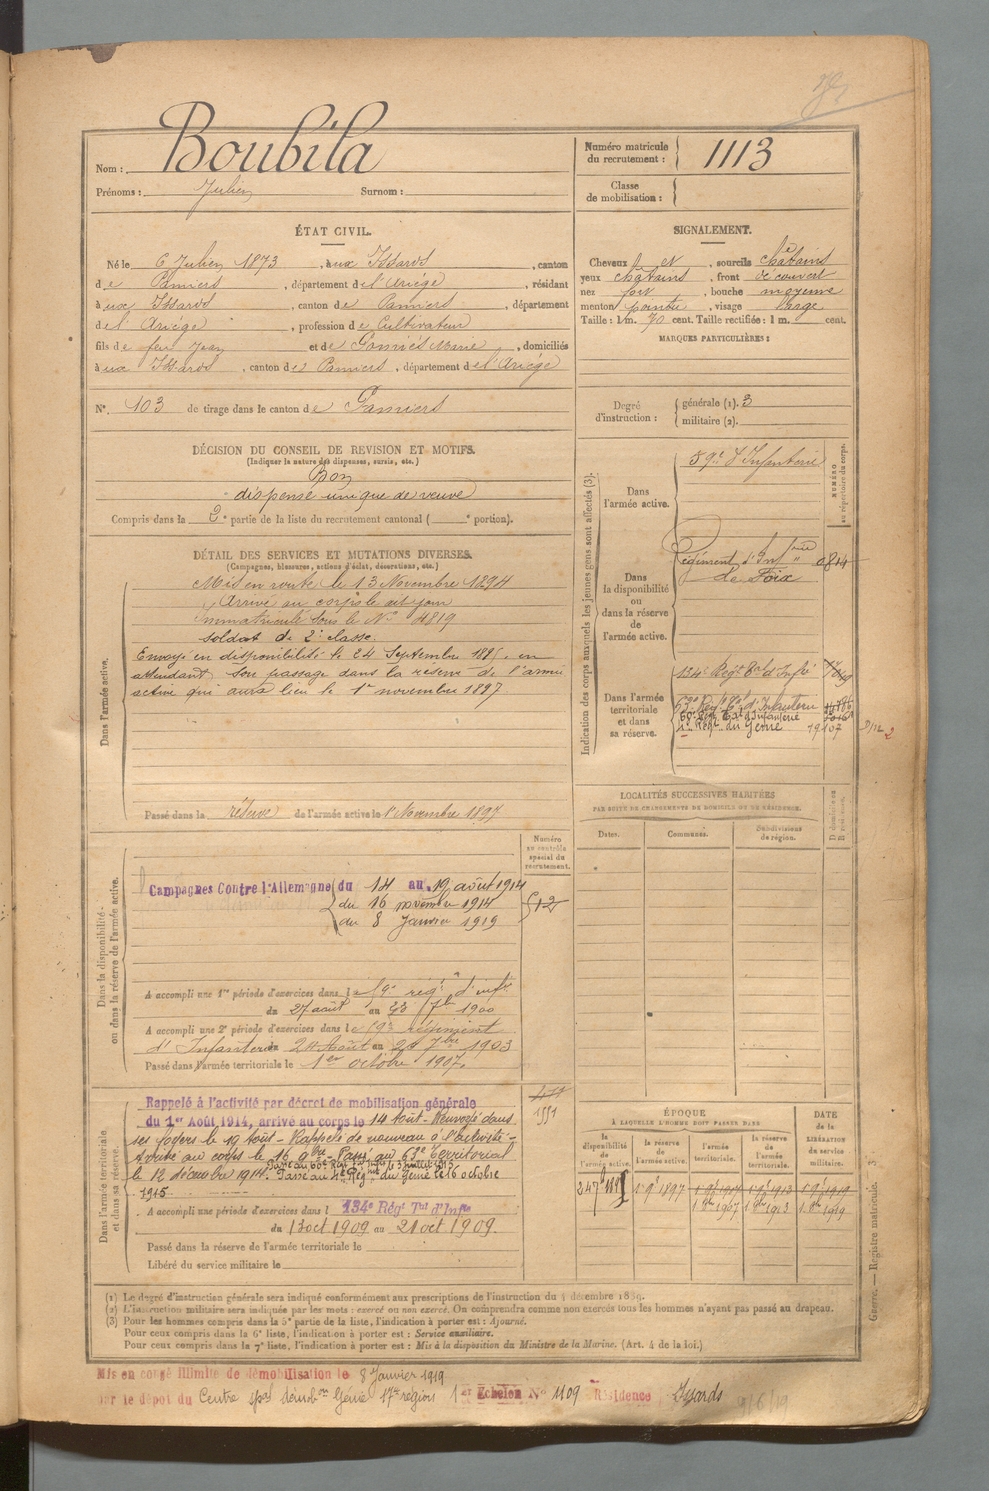 Nom : Boubila
Prénoms : Julien Surnom :
Numéro matricule du recrutement : 1113
Classe de mobilisation :
ÉTAT CIVIL.
Né le 6 Julien 1873, à ux Issards, canton
de Pamiers, département de l'Ariège, résidant
à ux Issards, canton de Pamiers, département
de l'Ariège, profession de Cultivateur
fils de feu Jean et de Marie, domiciliés
à ux Issards, canton de Pamiers, département de l'Ariège
N° 103 de tirage dans le canton de Pamiers
SIGNALEMENT.
Cheveux et, sourcils châtains
yeux châtains, front découvert
nez fort, bouche moyenne
menton pointu, visage large
Taille : 1 m. 70 cent. Taille rectifiée : 1 m. cent.
MARQUES PARTICULIÈRES :
Degré d'instruction : générale (1). 3
militaire (2).
DÉCISION DU CONSEIL DE REVISION ET MOTIFS.
(Indiquer la nature des dispenses, sursis, etc.)
Bon
dispense unique de veuve
Compris dans la 2e partie de la liste du recrutement cantonal ( e portion).
DÉTAIL DES SERVICES ET MUTATIONS DIVERSES.
(Campagnes, blessures, actions d'éclat, décorations, etc.)
Dans l'armée active.
Mis en route le 13 Novembre 1894
Arrivé au corps le dit jour
Immatriculé sous le N° 4819
soldat de 2e classe.
Envoyé en disponibilité le 24 Septembre 1895 en
attendant son passage dans la réserve de l'armée
active qui aura lieu le 1er novembre 1897
Passé dans la réserve de l'armée active le 1er Novembre 1897
Indication des corps auxquels les jeunes gens sont affectés (3).
NUMÉRO au répertoire du corps.
Dans l'armée active.
59e d'Infanterie
Dans la disponibilité ou dans la réserve de l'armée active.
Régiment d'Infrie 0814
de Foix
Dans l'armée territoriale et dans sa réserve.
134e Regt Tal d'Infie
63e Regt Tal d'Infanterie
60e Regt Tal d'Infanterie
Regt du Génie 19107
LOCALITÉS SUCCESSIVES HABITÉES
PAR SUITE DE CHANGEMENTS DE DOMICILE OU DE RÉSIDENCE.
Dates. Communes. Subdivisions de région. D domicile ou R résidence.
Dans la disponibilité ou dans la réserve de l'armée active.
Numéro au contrôle spécial du recrutement.
Campagnes Contre l'Allemagne du 14 au 19 août 1914
du 16 novembre 1914
au 8 Janvier 1919
A accompli une 1re période d'exercices dans le 59e régt d'infie
du 27 août au 23 7bre 1900
A accompli une 2e période d'exercices dans le 59e régiment
d'Infanterie du 24 Août au 20 7bre 1903
Passé dans l'armée territoriale le 1er octobre 1907.
Dans l'armée territoriale et dans sa réserve.
1551
Rappelé à l'activité par décret de mobilisation générale
du 1er Août 1914, arrivé au corps le 14 Août - Renvoyé dans
ses foyers le 19 Août - Rappelé de nouveau à l'activité -
Arrivé au corps le 16 9bre - Passé au 63e Territorial
le 12 décembre 1914. Passé au 60e Regt Tal d'Infie
Passé au Regt du Génie le 16 octobre
1915
A accompli une période d'exercices dans l 134e Régt Tal d'Infie
du 1 oct 1909 au 21 oct 1909.
Passé dans la réserve de l'armée territoriale le
Libéré du service militaire le
ÉPOQUE
À LAQUELLE L'HOMME DOIT PASSER DANS
DATE de la LIBÉRATION du service militaire.
la disponibilité de l'armée active. la réserve de l'armée active. l'armée territoriale. la réserve de l'armée territoriale.
24 7bre 1895 1 9bre 1897 1 9bre 1907 1 9bre 1913 1 9bre 1919
1 8bre 1907 1 8bre 1913 1 8bre 1919
Guerre. — Registre matricule. 3
(1) Le degré d'instruction générale sera indiqué conformément aux prescriptions de l'instruction du 4 décembre 1889.
(2) L'instruction militaire sera indiquée par les mots : exercé ou non exercé. On comprendra comme non exercés tous les hommes n'ayant pas passé au drapeau.
(3) Pour les hommes compris dans la 5e partie de la liste, l'indication à porter est : Ajourné.
Pour ceux compris dans la 6e liste, l'indication à porter est : Service auxiliaire.
Pour ceux compris dans la 7e liste, l'indication à porter est : Mis à la disposition du Ministre de la Marine. (Art. 4 de la loi.)
Mis en congé illimité de démobilisation le 8 Janvier 1919
par le dépôt du Centre spal démobon Génie 17e région 1er Echelon N° 1109 Résidence Issards
9/6/19